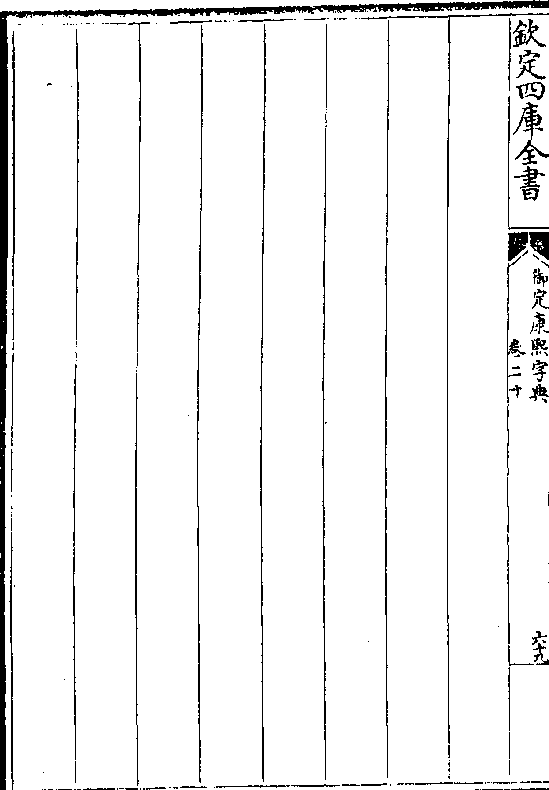 欽定四庫全書
御定康熙字典
卷二十
六十九